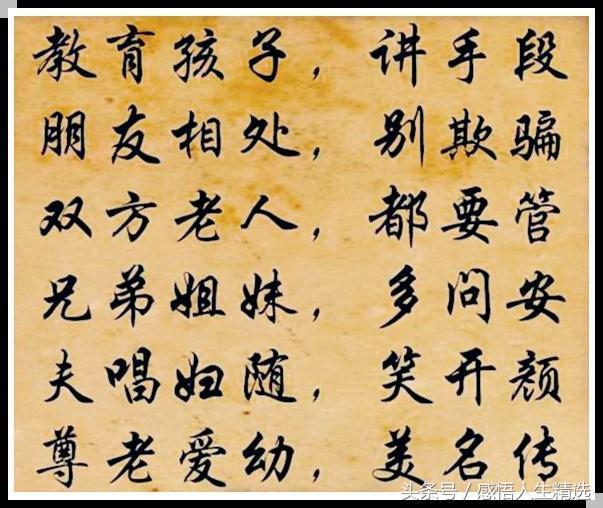 教育孩子，讲手段
朋友相处，别欺骗
双方老人，都要管
兄弟姐妹，多问安
夫唱妇随，笑开颜
尊老爱幼，美名传
头条号／感悟人生精选